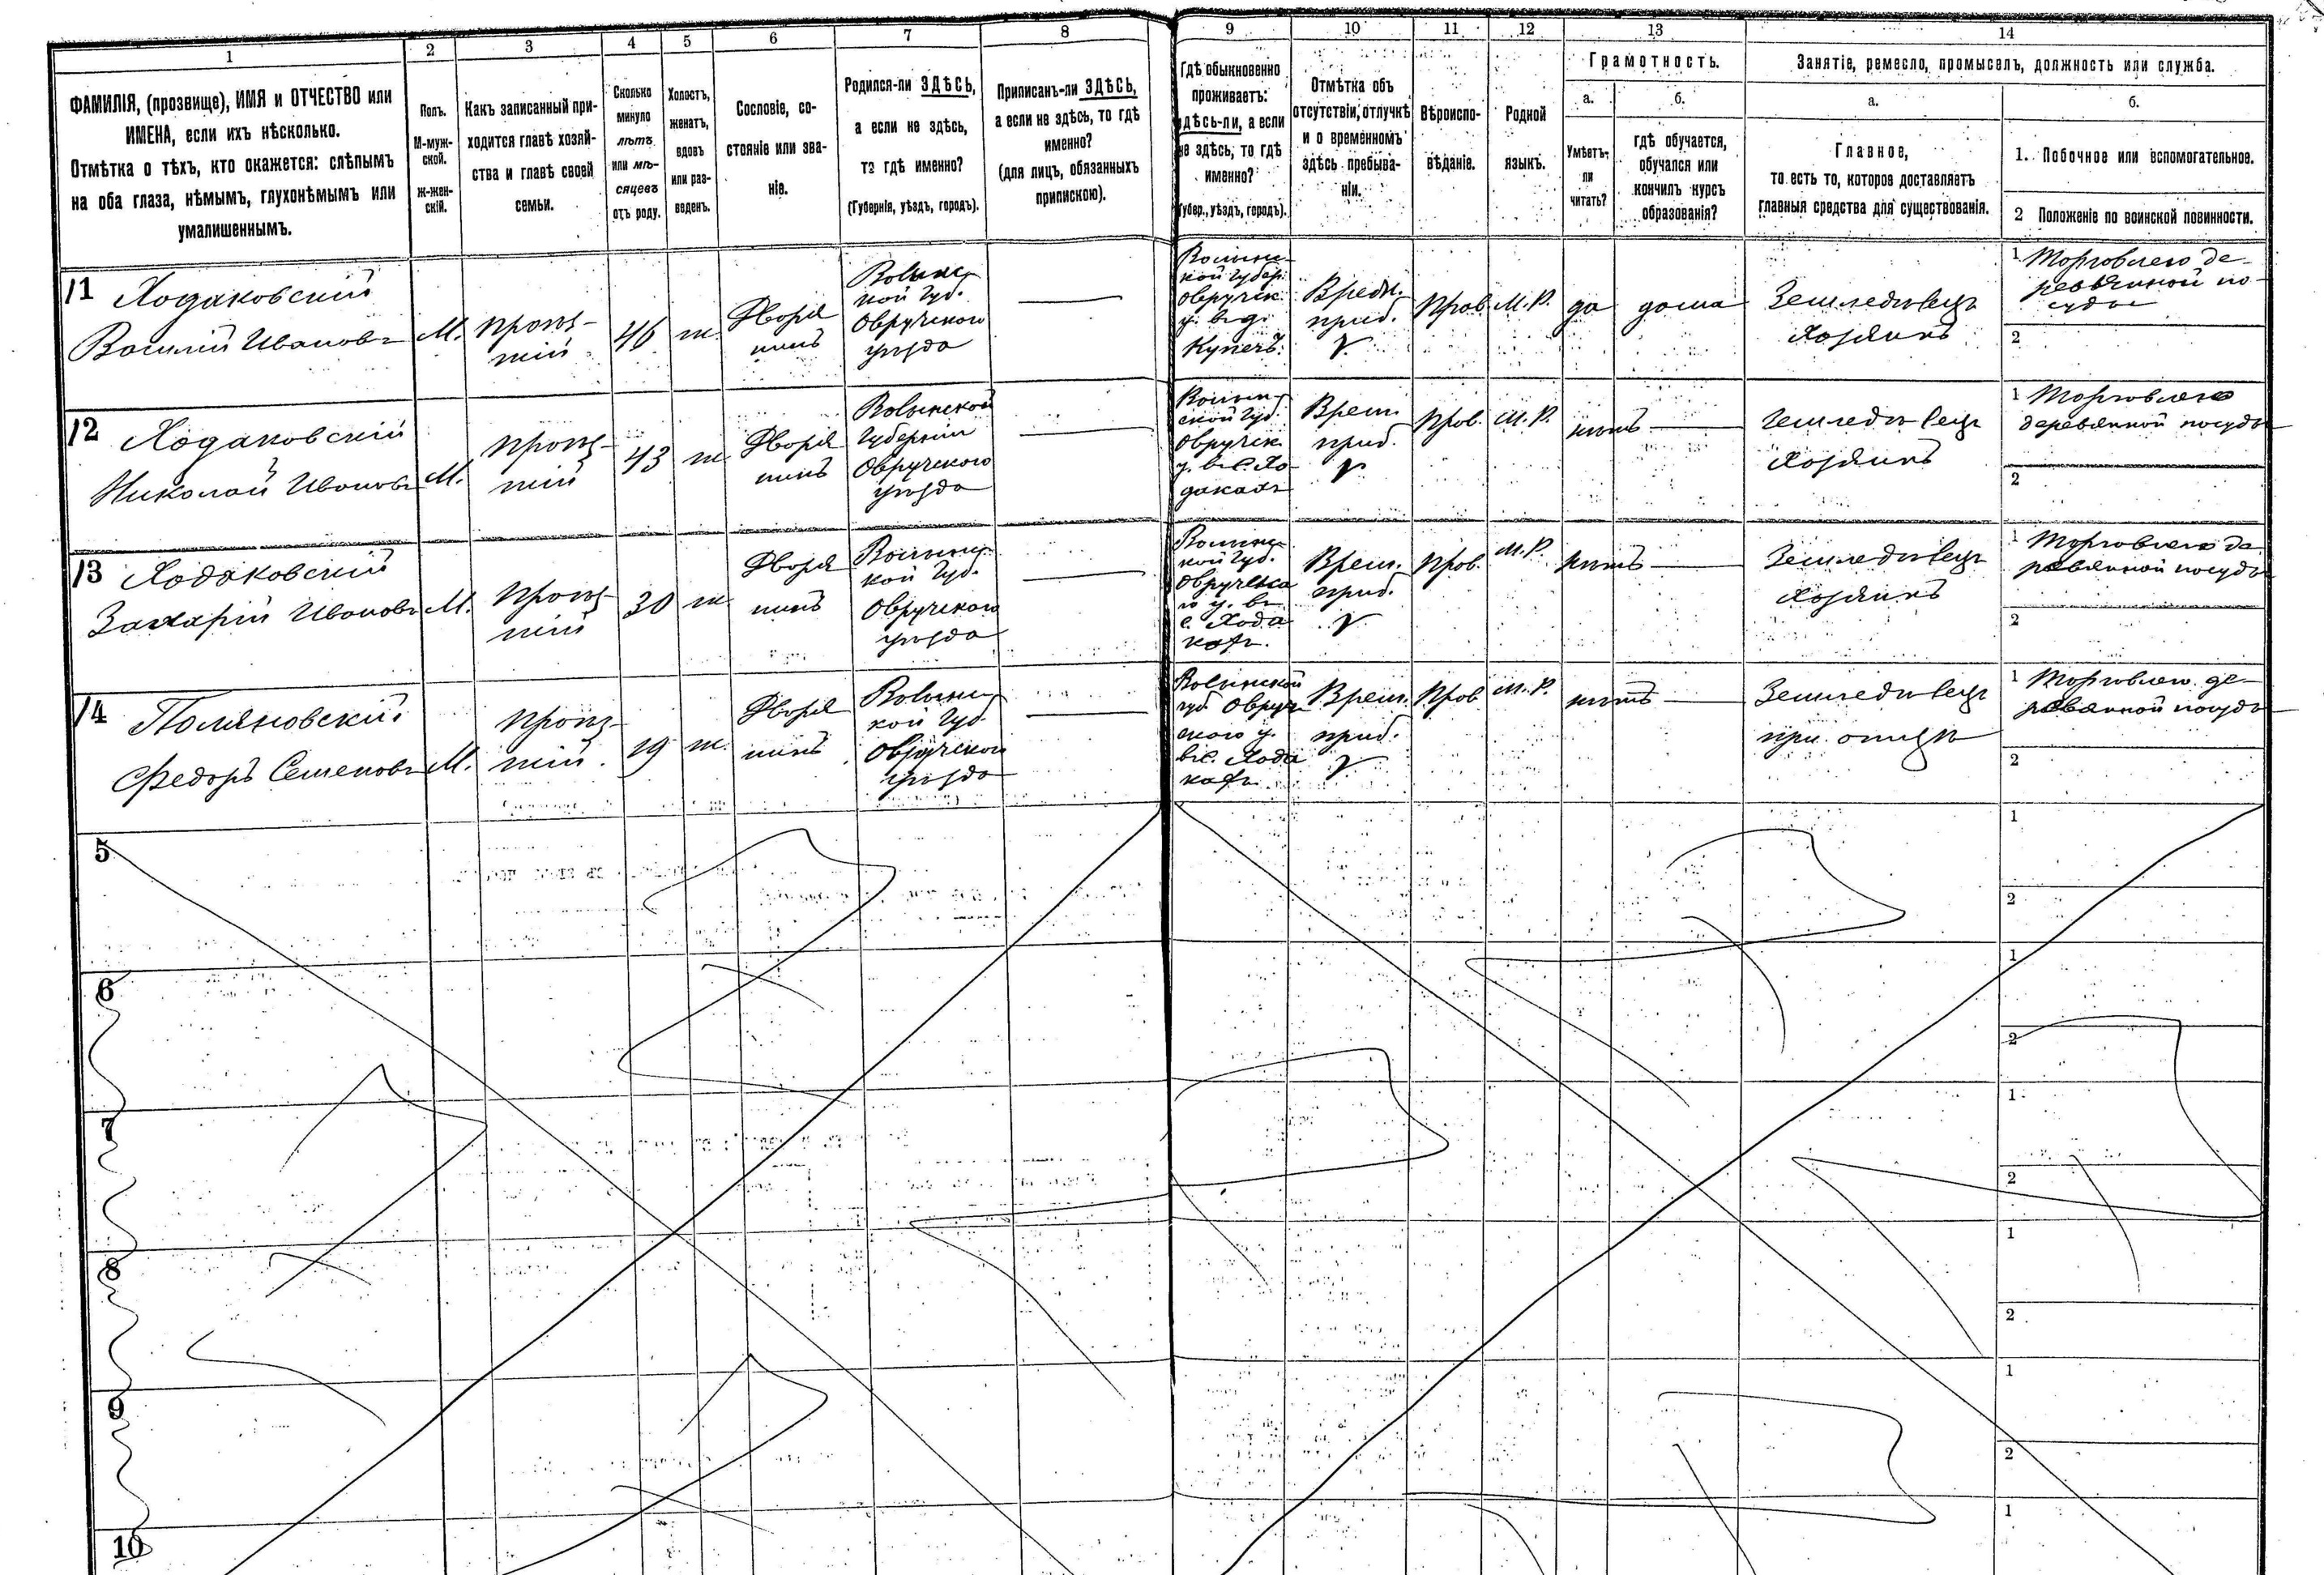 1
2
3
4
5
6
7
8
9
10
11
12
13
14
ФАМИЛІЯ, (прозвище), ИМЯ и ОТЧЕСТВО или
ИМЕНА, если ихъ нѣсколько.
Отмѣтка о тѣхъ, кто окажется: слѣпымъ
на оба глаза, нѣмымъ, глухонѣмымъ или
умалишеннымъ.
Полъ.
М-муж-
ской.
Ж-жен-
скій.
Какъ записанный при-
ходится главѣ хозяй-
ства и главѣ своей
семьи.
Сколько
минуло
лѣтъ
или мѣ-
сяцевъ
отъ роду.
Холостъ,
женатъ,
вдовъ
или раз-
веденъ.
Сословіе, со-
стояніе или зва-
ніе.
Родился-ли ЗДѢСЬ,
а если не здѣсь,
то гдѣ именно?
(Губернія, уѣздъ, городъ).
Приписанъ-ли ЗДѢСЬ,
а если не здѣсь, то гдѣ
именно?
(для лицъ, обязанныхъ
припискою).
Гдѣ обыкновенно
проживаетъ:
здѣсь-ли, а если
не здѣсь, то гдѣ
именно?
(Губер., уѣздъ, городъ).
Отмѣтка объ
отсутствіи, отлучкѣ
и о временномъ
здѣсь пребыва-
ніи.
Вѣроиспо-
вѣданіе.
Родной
языкъ.
Грамотность.
а.
Умѣетъ-
ли
читать?
б.
гдѣ обучается,
обучался или
кончилъ курсъ
образованія?
Занятіе, ремесло, промыселъ, должность или служба.
а.
Главное,
то есть то, которое доставляетъ
главныя средства для существованія.
б.
1. Побочное или вспомогательное.
2 Положеніе по воинской повинности.
11
Ходаковскій
Василій Ивановъ
М.
46
ж.
Дворя
нинъ
Волынс
кой Губ.
Овручскаго
уѣзда
Волынс
кой Губер.
Овручск.
у. в д.
Купечъ.
Врем.
приб.
Прав.
М. Р.
да
дома
Земледѣлецъ
Хозяинъ
1 Торговлею де-
ревянной по-
суды
2
12
Ходаковскій
Николай Ивановъ
М.
43
ж
Дворя
нинъ
Волынской
Губерніи
Овручского
уѣзда
Волын
ской Губ.
Овручск
у. в с. Хо
дакахъ
Врем.
приб.
Прав.
М. Р.
нѣтъ
Земледѣлецъ
Хозяинъ
1 Торговлею
деревянной посуды
2
13
Ходаковскій
Захарій Ивановъ
М.
30
ж
Дворя
нинъ
Волынс
кой Губ.
Овручского
уѣзда
Волынс
кой Губ.
Овручска
го у. въ
с. Хода
кахъ.
Врем.
приб.
Прав.
М. Р.
нѣтъ
Земледѣлецъ
Хозяинъ
1 Торговлею де
ревянной посуды
2
14
Поляновскій
Федоръ Семеновъ
М.
19
ж.
Дворя
нинъ
Волынс
кой Губ.
Овручскаго
уѣзда
Волынской
губ. Овруч
ского у.
в с. Хода
кахъ
Врем.
приб.
Прав
М. Р.
нѣтъ
Земледѣлецъ
при отцѣ
1 Торговлею де-
ревянной посуды
2
5
1
2
6
1
2
7
1
2
8
1
2
9
1
2
10
1